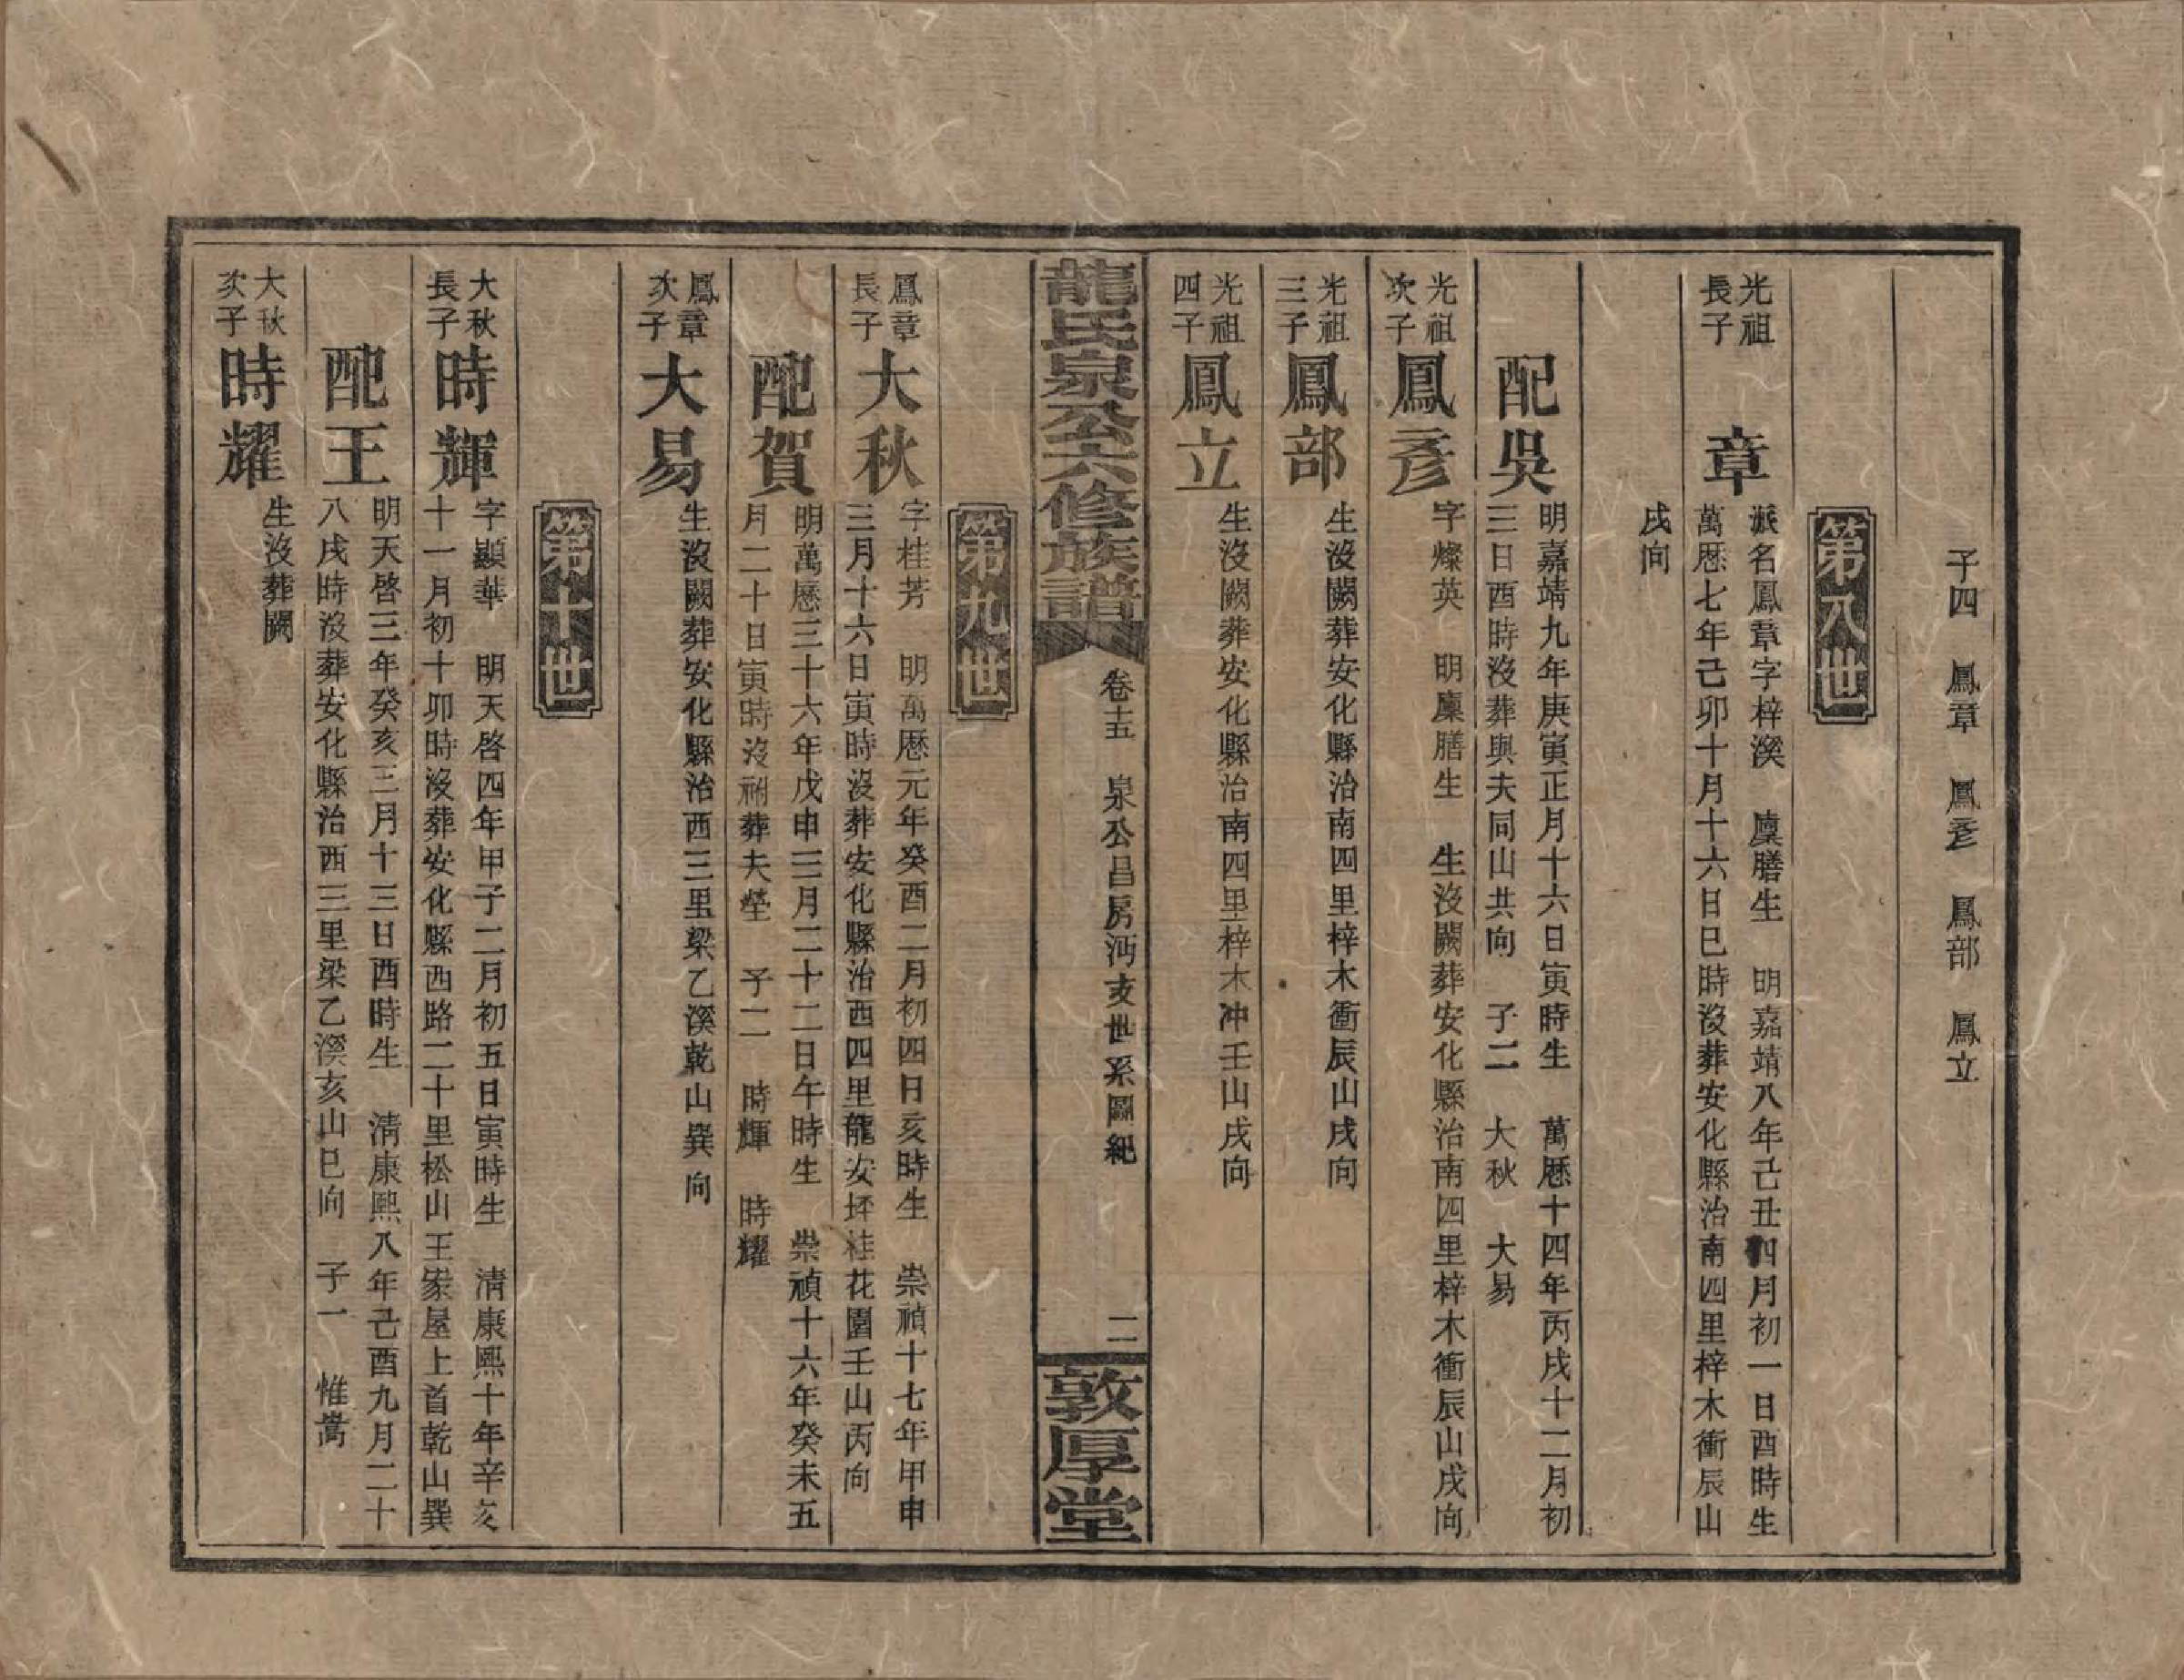 子四　鳳章　鳳彥　鳳部　鳳立
第八世
光祖
長子
章
派名鳳章字梓溪　廩膳生　明嘉靖八年己丑四月初一日酉時生
萬歷七年己卯十月十六日巳時沒葬安化縣治南四里梓木衝辰山
戌向
配吳
明嘉靖九年庚寅正月十六日寅時生　萬歷十四年丙戌十二月初
三日酉時沒葬與夫同山共向　子二　大秋　大易
光祖
次子
鳳彥
字燦英　明廩膳生　生沒闕葬安化縣治南四里梓木衝辰山戌向
光祖
三子
鳳部
生沒闕葬安化縣治南四里梓木衝辰山戌向
光祖
四子
鳳立
生沒闕葬安化縣治南四里梓木冲壬山戌向
龍氏泉公六修族譜
卷十五　泉公昌房沔支世系圖紀
二
敦厚堂
第九世
鳳章
長子
大秋
字桂芳　明萬歷元年癸酉二月初四日亥時生　崇禎十七年甲申
三月十六日寅時沒葬安化縣治西四里龍安坪桂花園壬山丙向
配賀
明萬歷三十六年戊申三月二十二日午時生　崇禎十六年癸未五
月二十日寅時沒祔葬夫塋　子二　時輝　時耀
鳳章
次子
大易
生沒闕葬安化縣治西三里梁乙溪乾山巽向
第十世
大秋
長子
時輝
字顯華　明天啓四年甲子二月初五日寅時生　清康熙十年辛亥
十一月初十卯時沒葬安化縣西路二十里松山王家屋上首乾山巽
配王
明天啓三年癸亥三月十三日酉時生　清康熙八年己酉九月二十
八戌時沒葬安化縣治西三里梁乙溪亥山巳向　子一　惟嵩
大秋
次子
時耀
生沒葬闕